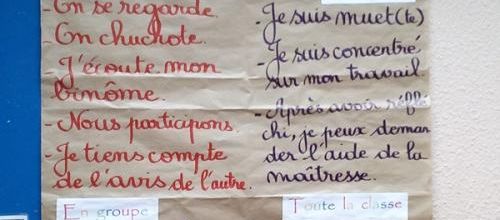 - On se regarde.
On chuchote.
J'écoute mon
binôme.
- Nous participons.
- Je tiens compte
de l'avis de l'autre.
En groupe
- Je suis muet(te)
- Je suis concentré
sur mon travail
- Après avoir réflé
chi, je peux deman
der l'aide de la
maîtresse.
Toute la classe